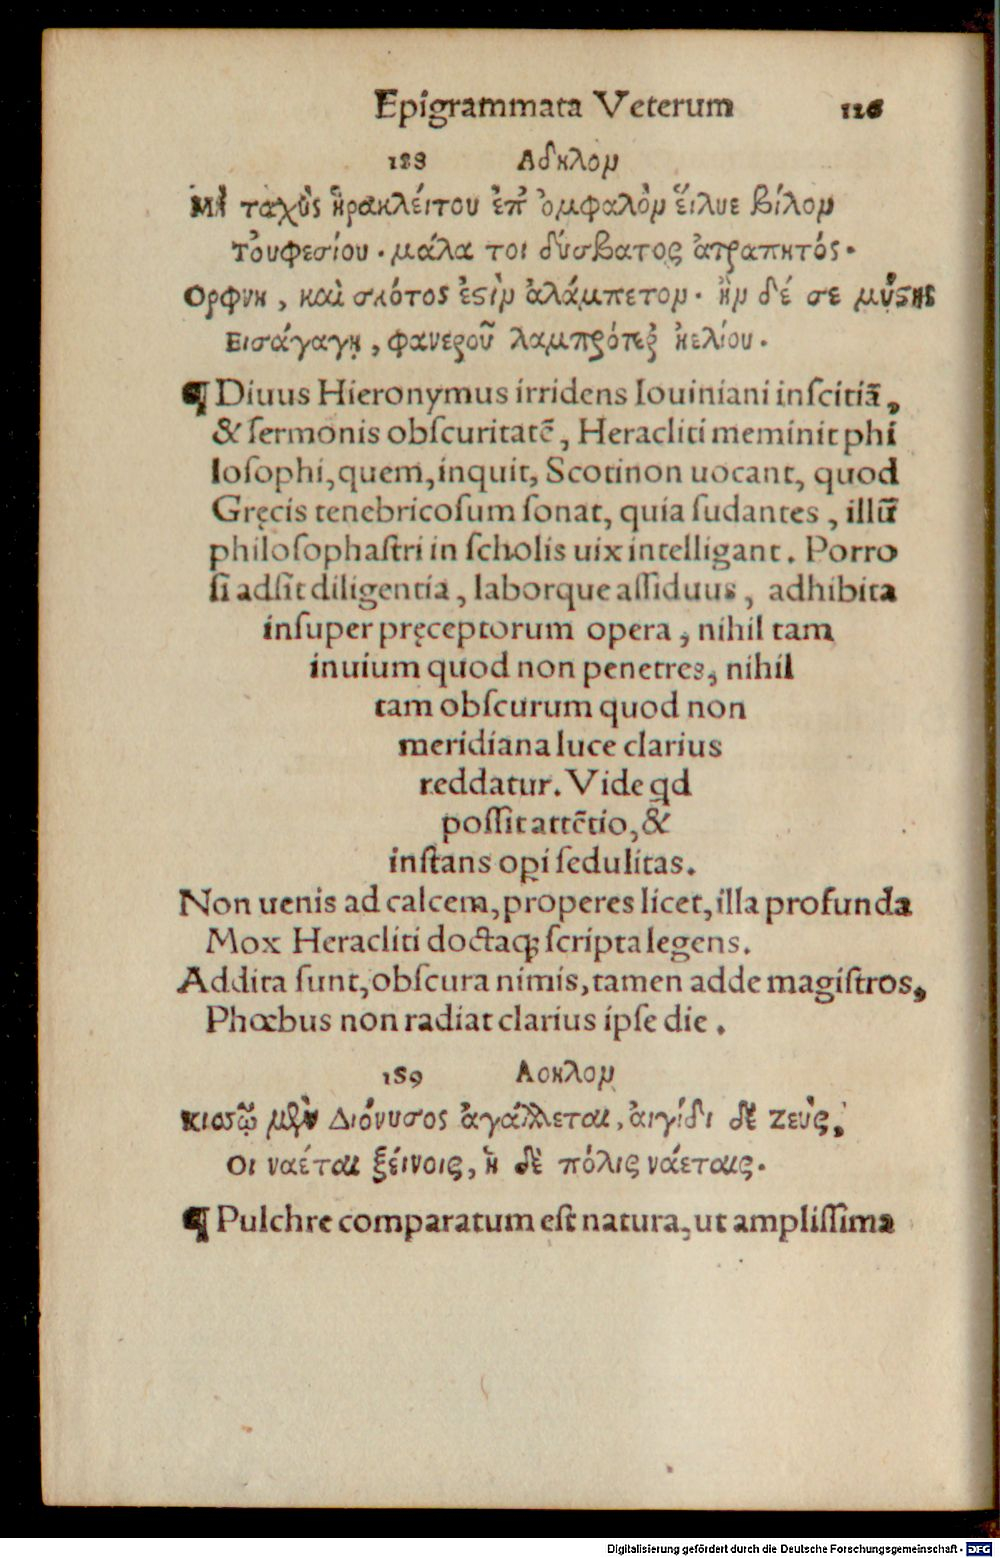 Epigrammata Veterum 126
188 Αδηλομ
Μὴ ταχὺς ἡρακλείτου ἐπ' ὀμφαλὸμ εἵλυε βίβλομ
Τοὐφεσίου. μάλα τοι δύσβατος ἀτραπητός.
Ορφνη, καὶ σκότος ἐστὶμ ἀλάμπετομ. ἢμ δέ σε μύστης
Εισάγαγῃ, φανεροῦ λαμπρότερ' ἠελίου.
¶ Diuus Hieronymus irridens Iouiniani inſcitiā,
& ſermonis obſcuritatē, Heracliti meminit phi
loſophi, quem, inquit, Scotinon uocant, quod
Gręcis tenebricoſum ſonat, quia ſudantes, illū
philoſophaſtri in ſcholis uix intelligant. Porro
ſi adſit diligentia, laborque aſſiduus, adhibita
inſuper pręceptorum opera, nihil tam
inuium quod non penetres, nihil
tam obſcurum quod non
meridiana luce clarius
reddatur. Vide qd
poſſit attētio, &
inſtans oꝑi ſedulitas.
Non uenis ad calcem, properes licet, illa profunda
Mox Heracliti doctaqꝫ ſcripta legens.
Addita ſunt, obſcura nimis, tamen adde magiſtros,
Phœbus non radiat clarius ipſe die.
189 Αδηλομ
Κισσῷ μὲν Διόνυσος ἀγάλλεται, αἰγίδι δὲ Ζεὺς,
Οι ναέται ξείνοις, ἡ δὲ πόλις ναέταις.
¶ Pulchre comparatum eſt natura, ut ampliſſima
Digitalisierung gefördert durch die Deutsche Forschungsgemeinschaft - DFG